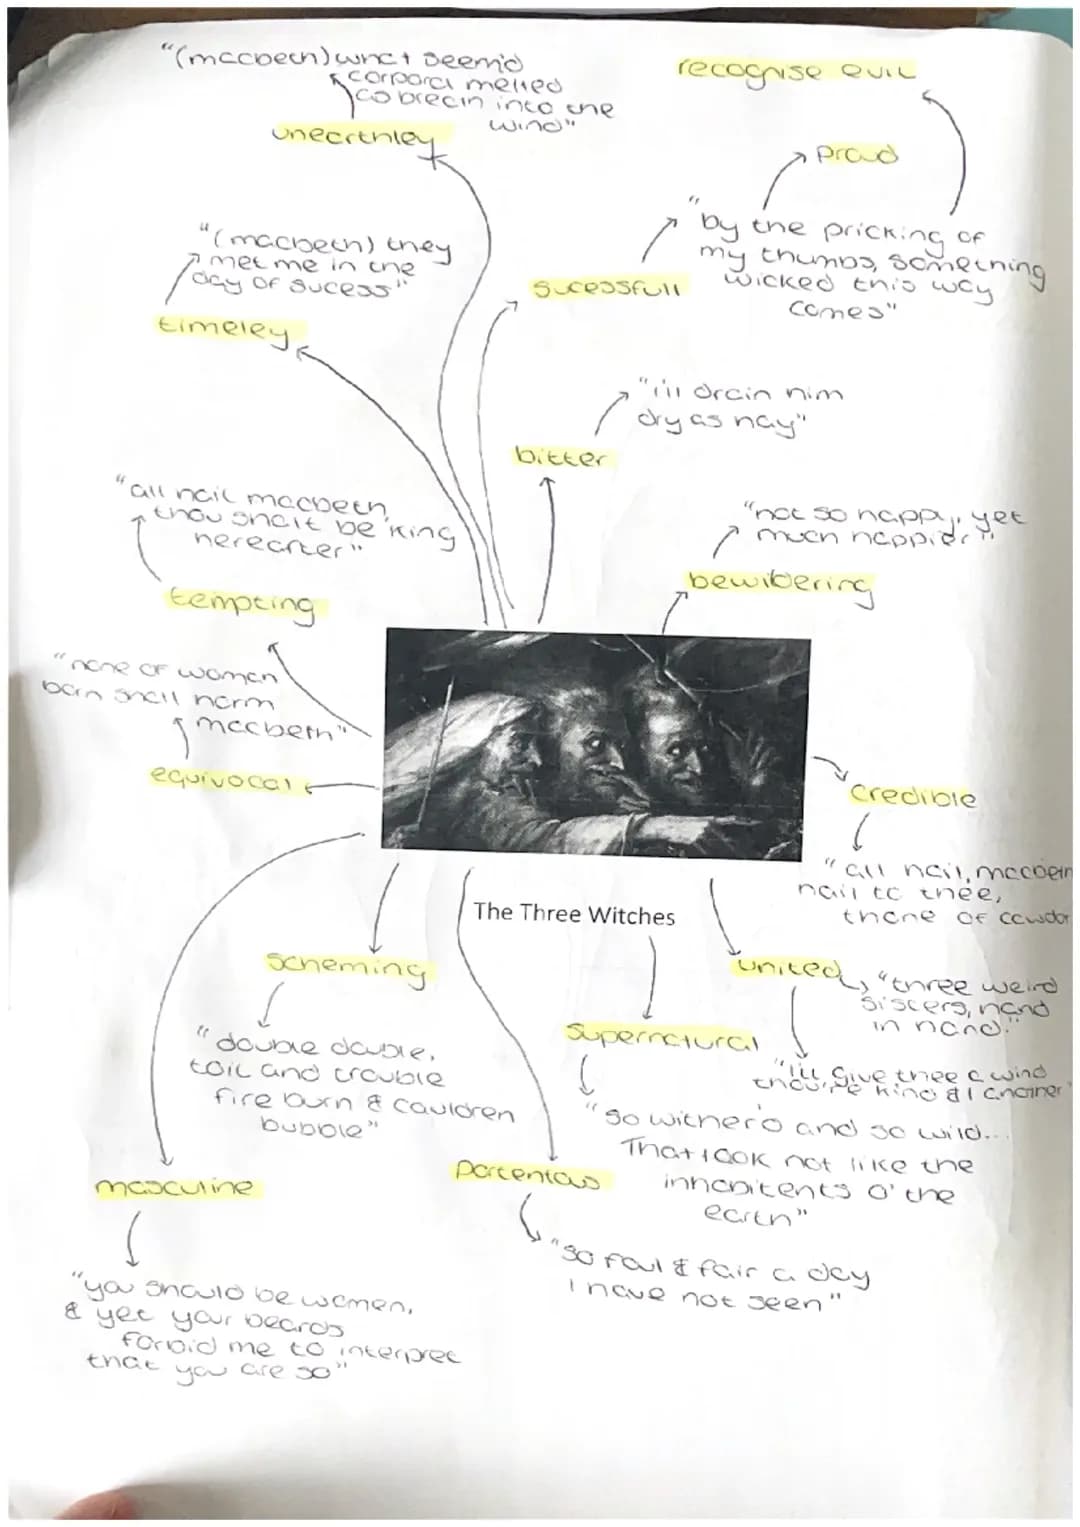 "(macbeth) what seem'd
corporal melted
as breath into the
wind"
unearthley
recognise evil
proud
"by the pricking of
my thumbs, something
wicked this way
comes"
sucessfull
"(macbeth) they
met me in the
day of sucess"
timeley
"i'll drain him
dry as hay"
bitter
"all hail macbeth,
thou shalt be king
hereafter"
tempting
"not so happy, yet
much happier"
bewildering
"none of women
born shall harm
macbeth"
equivocal
credible
"all hail, macbeth
hail to thee,
thane of cawdor
The Three Witches
scheming
"double double,
toil and trouble
fire burn & cauldren
bubble"
united
"three weird
sisters, hand
in hand."
"i'll give thee a wind
thou're kind & I another
supernatural
"so wither'd and so wild...
That look not like the
inhabitents o' the
earth"
masculine
"you should be women,
& yet your beards
forbid me to interpret
that you are so"
portentous
"so foul & fair a day
I have not seen"